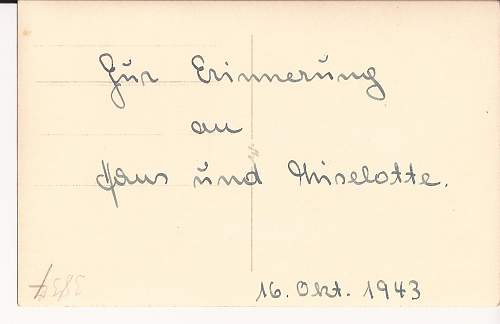 Zur Erinnerung
an
Hans und Liselotte.
16. Okt. 1943